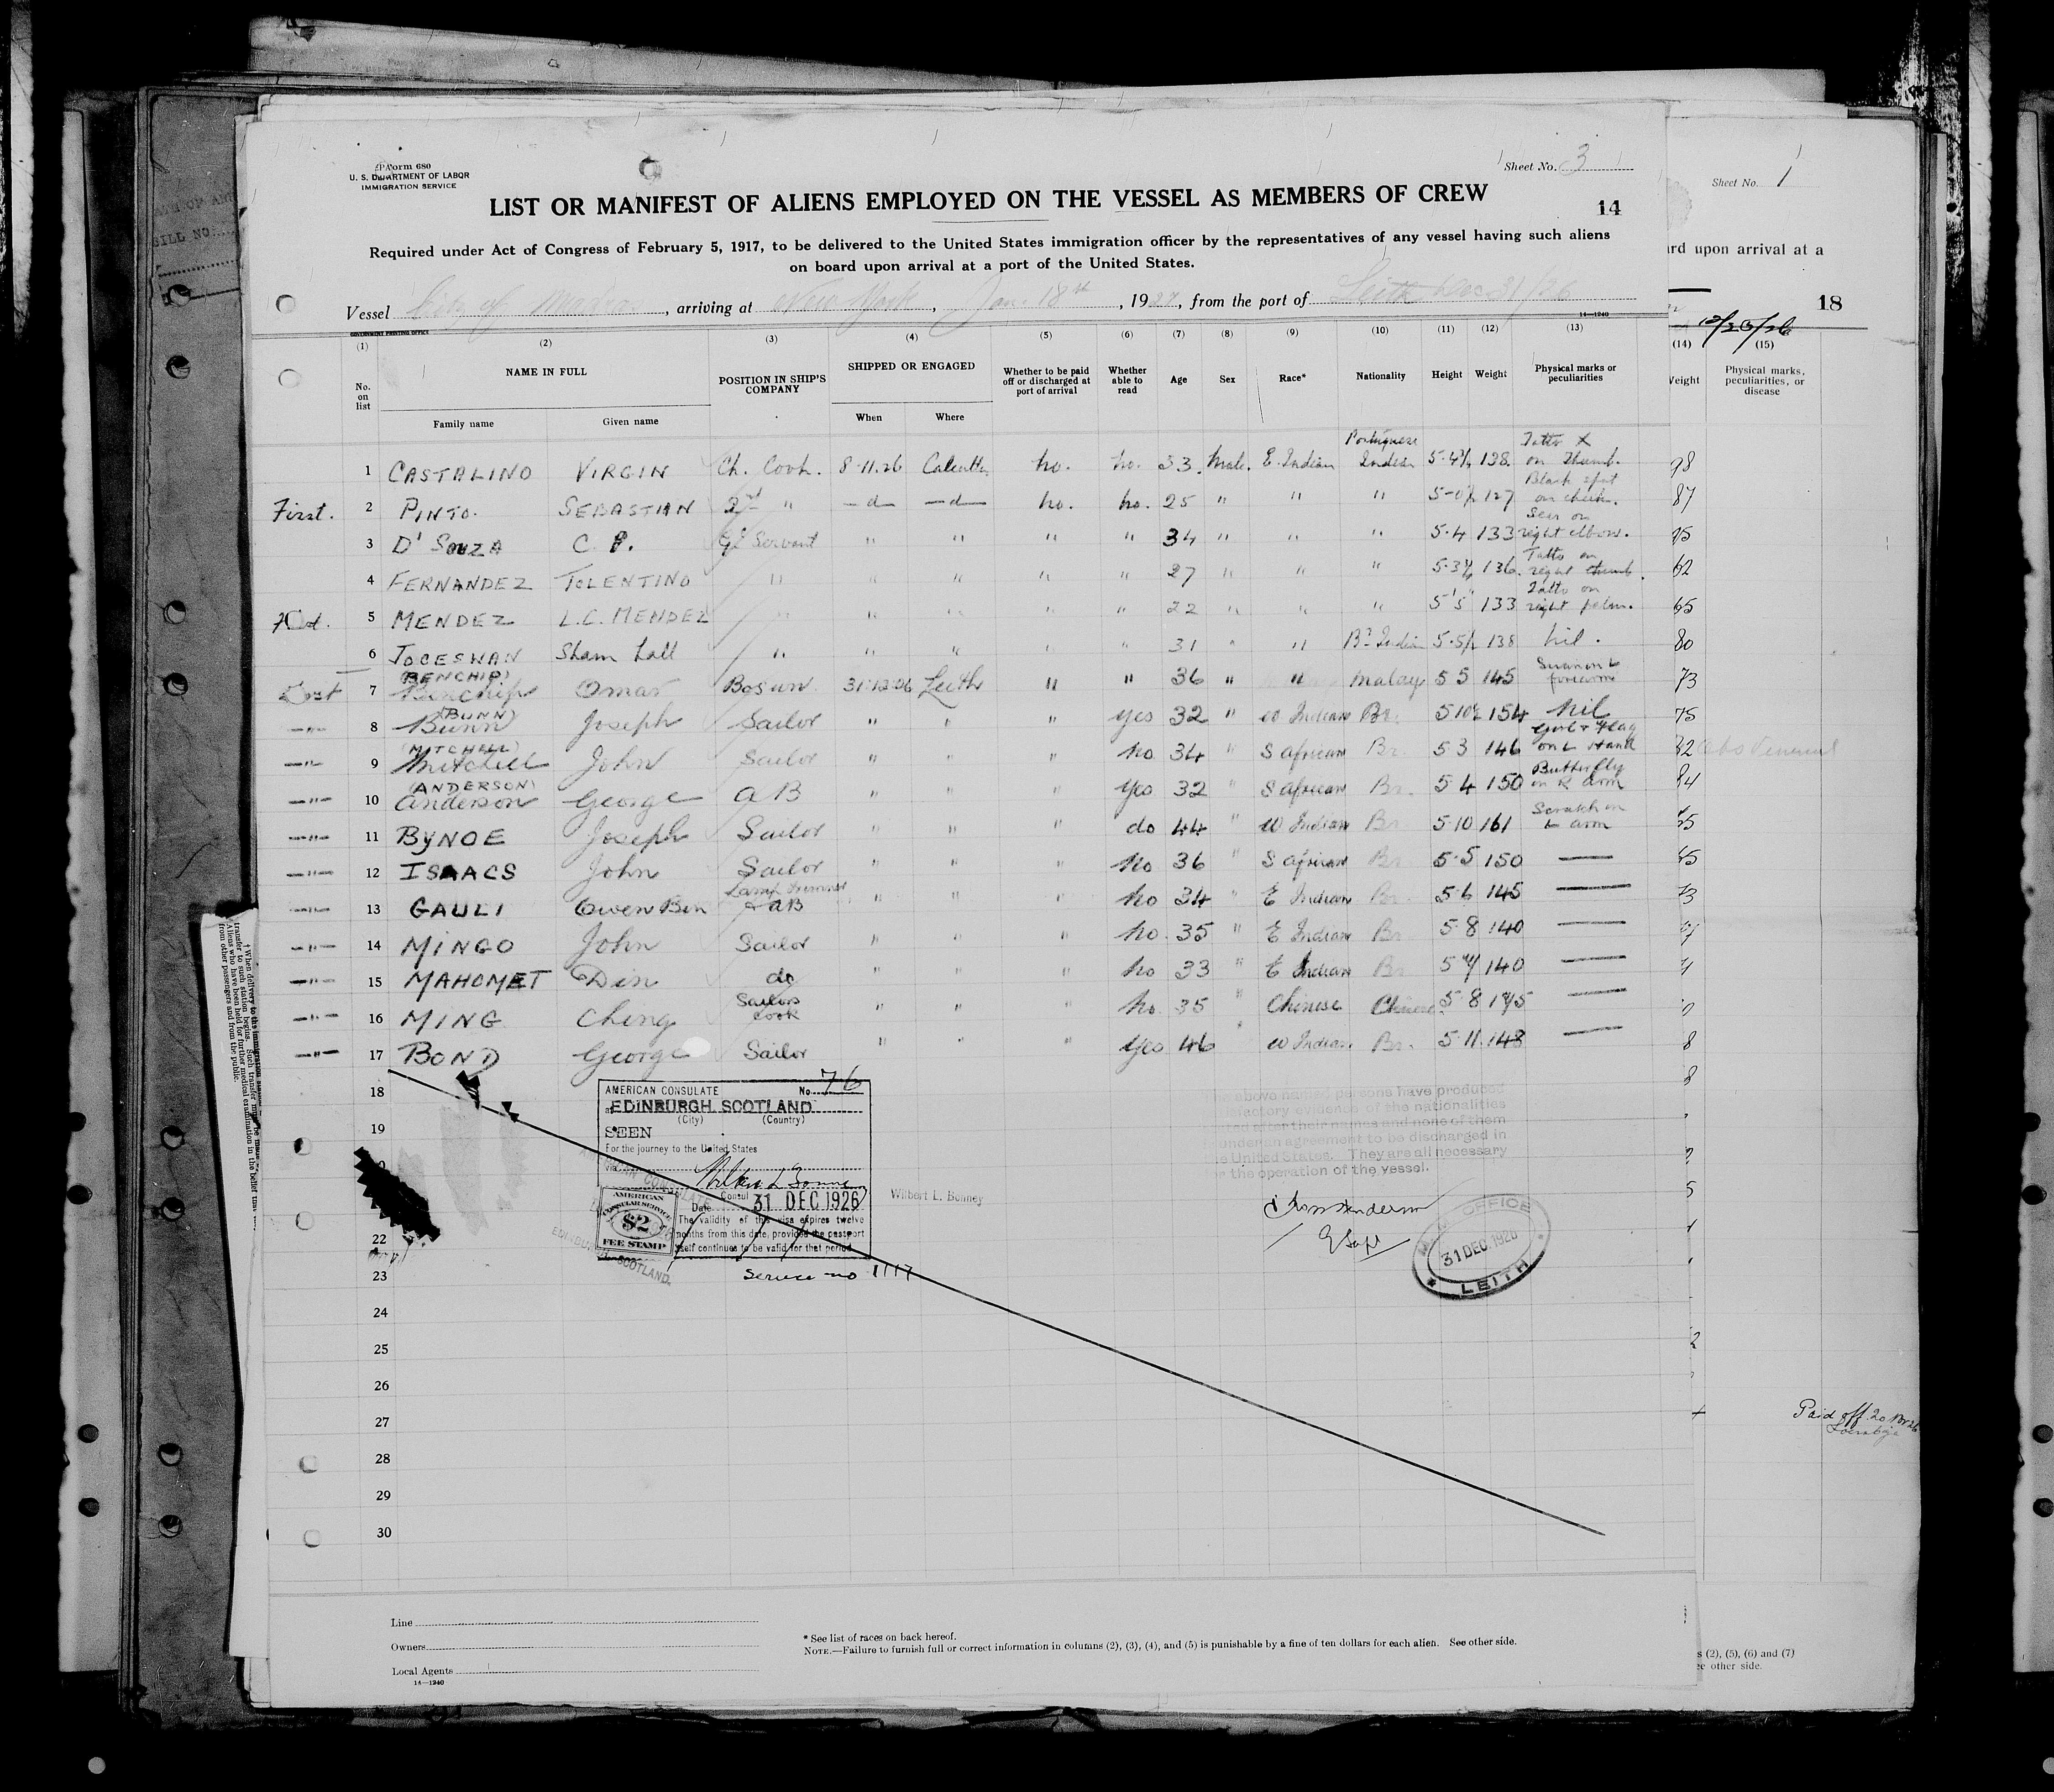 Form 680
U. S. DEPARTMENT OF LABOR
IMMIGRATION SERVICE
Sheet No. 3
Sheet No. 1
LIST OR MANIFEST OF ALIENS EMPLOYED ON THE VESSEL AS MEMBERS OF CREW
14
Required under Act of Congress of February 5, 1917, to be delivered to the United States immigration officer by the representatives of any vessel having such aliens
on board upon arrival at a port of the United States.
rd upon arrival at a
Vessel City of Madras, arriving at New York, Jan. 18th, 1927, from the port of Leith Dec 31/26
18
GOVERNMENT PRINTING OFFICE
14—1240
12/25/26
(1) (2) (3) (4) (5) (6) (7) (8) (9) (10) (11) (12) (13) (14) (15)
No. on list NAME IN FULL POSITION IN SHIP'S COMPANY SHIPPED OR ENGAGED Whether to be paid off or discharged at port of arrival Whether able to read Age Sex Race* Nationality Height Weight Physical marks or peculiarities
Weight Physical marks, peculiarities, or disease
Family name Given name When Where
1 CASTALINO VIRGIN Ch. Cook. 8-11.26 Calcutta no. no. 33. Male. E. Indian Portuguese Indian 5-4½ 138. Tatto X on Thumb. 98
First. 2 PINTO. SEBASTIAN 2nd " —d— —d— no. no. 25 " " " 5-0½ 127 Black spot on cheek. 87
3 D'SOUZA C. P. Gl Servant " " " " 34 " " " 5-4 133 Scar on right elbow. 95
4 FERNANDEZ TOLENTINO " " " " " 27 " " " 5-3½ 136. Tatto on right thumb. 62
5 MENDEZ L.C. MENDEZ " " " " " 22 " " " 5'5" 133 Tatto on right palm. 65
6 JOCESWAN Sham Lall " " " " " 31 " " Br. Indian 5-5½ 138 nil. 80
7 Benchip (BENCHIP) Omar Bosun 31-12-26 Leith " " 36 " " Malay 5 5 145 forearm 73
—"— 8 Bunn (BUNN) Joseph Sailor " " " yes 32 " W Indian Br. 5 10½ 154 nil 75
—"— 9 Mitchell (MITCHELL) John Sailor " " " no 34 " S African Br. 5 3 146 Girl & Flag on L Hand 82
—"— 10 Anderson (ANDERSON) George AB " " " Yes 32 " S African Br. 5 4 150 Butterfly on R arm 84
—"— 11 BYNOE Joseph Sailor " " " do 44 " W Indian Br 5-10 161 Scratch on L arm
—"— 12 ISAACS John Sailor " " " no 36 " S African Br. 5-5 150 —
—"— 13 GAULI Owen Ben Lamp Trimmer & AB " " " no 34 " E Indian Br. 5 6 145 —
—"— 14 MINGO John Sailor " " " no. 35 " E Indian Br 5-8 140 —
—"— 15 MAHOMET Din do " " " no 33 " E Indian Br 140 —
—"— 16 MING Ching Sailors Cook " " " no. 35 " Chinese Chinese —
—"— 17 BOND George Sailor " " " Yes 46 W Indian Br. 5-11 148 —
18
19
22
23
24
25
26
27
28
29
30
AMERICAN CONSULATE No. 76
at EDINBURGH, SCOTLAND
(City) (Country)
SEEN
For the journey to the United States
via
Consul
Date 31 DEC 1926
The validity of this visa expires twelve
months from this date, provided the passport
itself continues to be valid for that period
AMERICAN
CONSULAR SERVICE
$2
FEE STAMP
Wilbert L. Bonney
Service no 1117
above named persons have produced
factory evidence of the nationalities
after their names and none of them
under an agreement to be discharged in
the United States. They are all necessary
for the operation of the vessel.
OFFICE
31 DEC 1926
LEITH
Paid off 20
Line
Owners
Local Agents
14—1240
* See list of races on back hereof.
NOTE.—Failure to furnish full or correct information in columns (2), (3), (4), and (5) is punishable by a fine of ten dollars for each alien. See other side.
s (2), (5), (6) and (7)
ee other side.